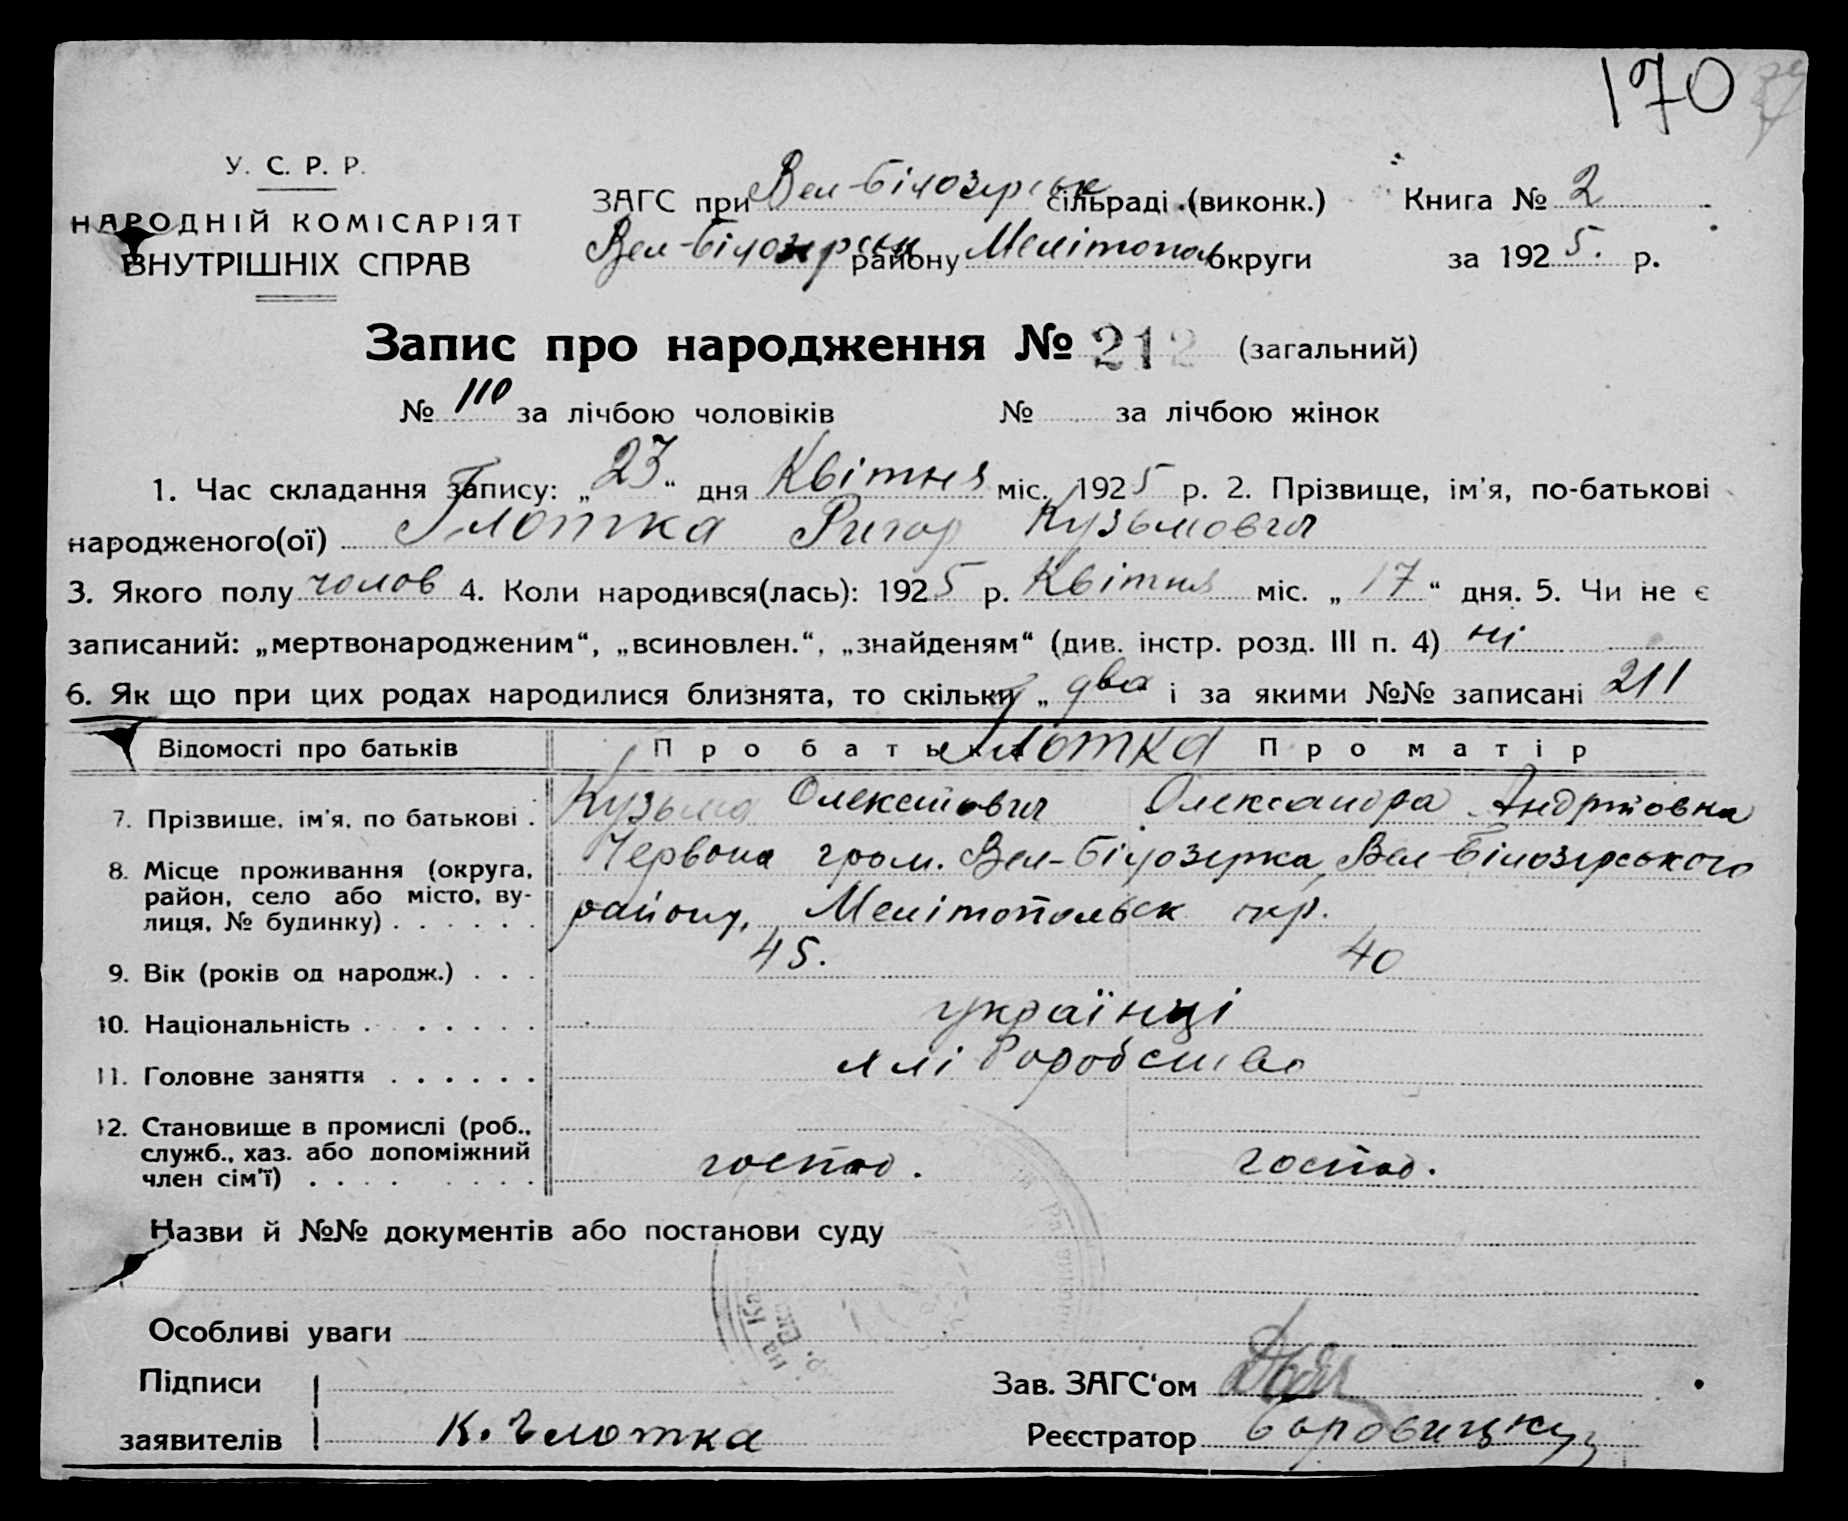 170
У. С. Р. Р.
НАРОДНІЙ КОМІСАРІЯТ
ВНУТРІШНІХ СПРАВ
ЗАГС при Вел-Білозерськ сільраді (виконк.) Книга № 2
Вел-Білозерськ району Мелітопол округи за 1925. р.
Запис про народження № 212 (загальний)
№ 110 за лічбою чоловіків № за лічбою жінок
1. Час складання запису: „23“ дня Квітня міс. 1925 р. 2. Прізвище, ім'я, по-батькові
народженого(ої) Глотка Ригор Кузьмович
3. Якого полу чолов 4. Коли народився(лась): 1925 р. Квітня міс. „17“ дня. 5. Чи не є
записаний: „мертвонародженим“, „всиновлен.“, „знайденям“ (див. інстр. розд. III п. 4) ні
6. Як що при цих родах народилися близнята, то скільки „ два і за якими №№ записані 211
Відомості про батьків Про батька Глотка Про матір
7. Прізвище, ім'я, по батькові . Кузьма Олексійович Олександра Андріївна
8. Місце проживання (округа, Червона гром. Вел-Білозерка, Вел-Білозерського
район, село або місто, ву-
лиця, № будинку) . . . . . . району, Мелітопольськ окр.
9. Вік (років од народж.) . . . 45. 40
10. Національність . . . . . . . українці
11. Головне заняття . . . . . . хліборобство
12. Становище в промислі (роб.,
служб., хаз. або допоміжний господ. господ.
член сім'ї) . . . . . . .
Назви й №№ документів або постанови суду
Особливі уваги
Підписи Зав. ЗАГС‘ом
заявителів К. Глотка Реєстратор